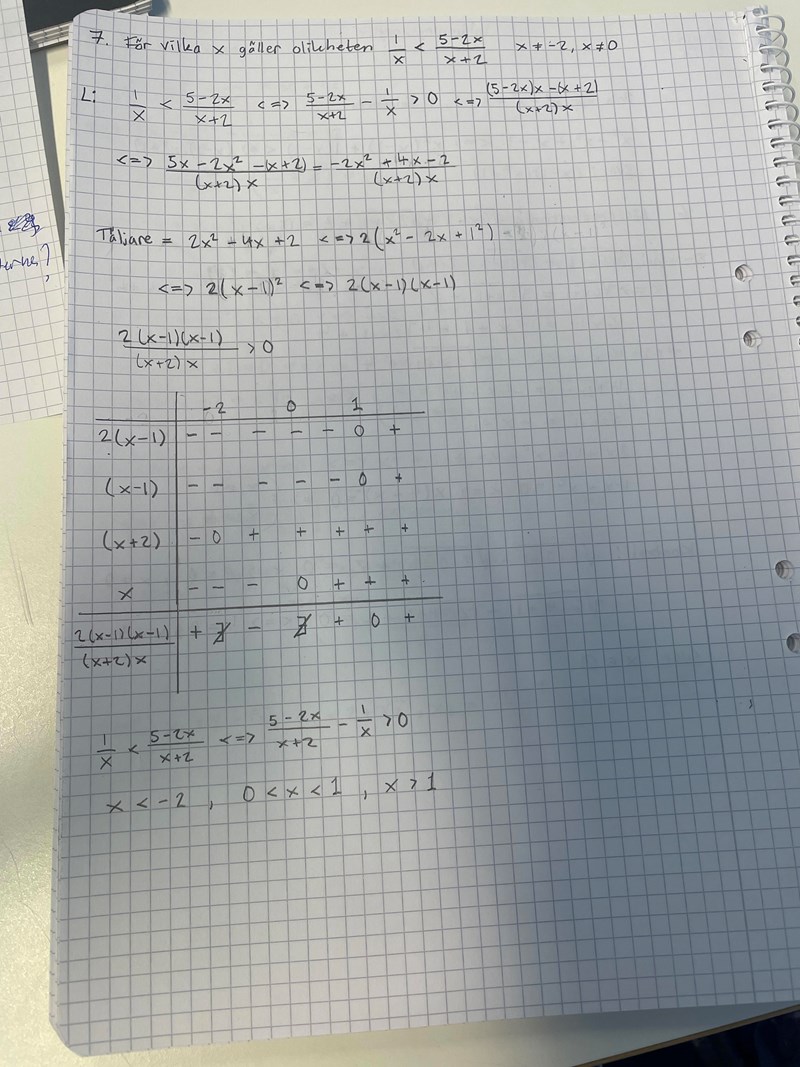 7. För vilka x gäller olikheten 1/x < (5-2x)/(x+2) x ≠ -2, x ≠ 0
L: 1/x < (5-2x)/(x+2) <=> (5-2x)/(x+2) - 1/x > 0 <=> ((5-2x)x -(x+2))/((x+2)x)
<=> (5x - 2x² -(x+2))/((x+2)x) = (-2x² + 4x - 2)/((x+2)x)
Täljare = 2x² - 4x + 2 <=> 2(x² - 2x + 1²)
<=> 2(x-1)² <=> 2(x-1)(x-1)
(2(x-1)(x-1))/((x+2)x) > 0
-2 0 1
2(x-1) - - - - - 0 +
(x-1) - - - - - 0 +
(x+2) - 0 + + + + +
x - - - 0 + + +
(2(x-1)(x-1))/((x+2)x) + - + 0 +
1/x < (5-2x)/(x+2) <=> (5-2x)/(x+2) - 1/x > 0
x < -2 , 0 < x < 1 , x > 1